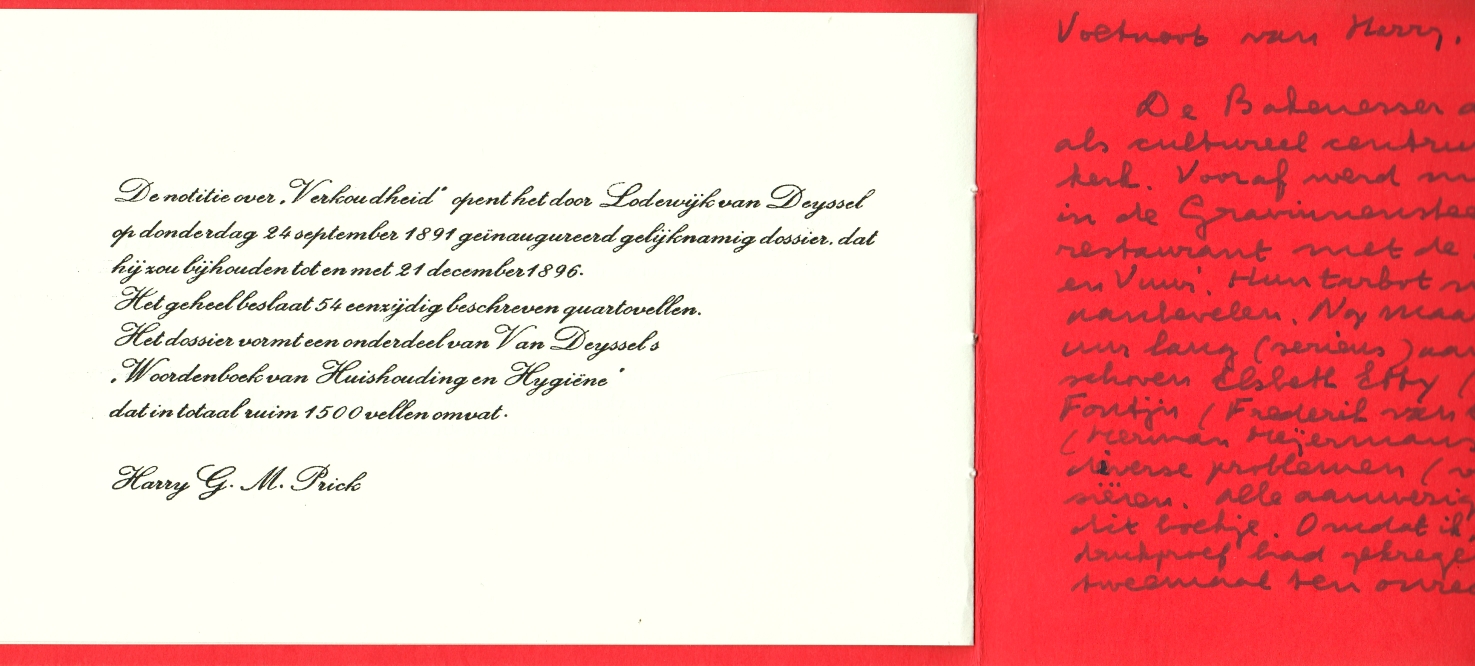 De notitie over „Verkoudheid" opent het door Lodewijk van Deyssel
op donderdag 24 september 1891 geïnaugureerd gelijknamig dossier. dat
hij zou bijhouden tot en met 21 december 1896.
Het geheel beslaat 54 eenzijdig beschreven quartovellen.
Het dossier vormt een onderdeel van Van Deyssels
„Woordenboek van Huishouding en Hygiëne"
dat in totaal ruim 1500 vellen omvat.
Harry G. M. Prick
Voetnoot van Harry.
De Bakenesser
als cultureel
kerk. Vooraf werd
in de
restaurant met de
en Vuur. Hun tarbot
aanbevelen. Nog
uur lang (serieus)
schoven Elsbeth Etty (
Fontijn (Frederik van
(Herman Heijermans
diverse problemen (
siëren. Alle
dit boekje. Omdat ik
drukproef had
tweemaal ten